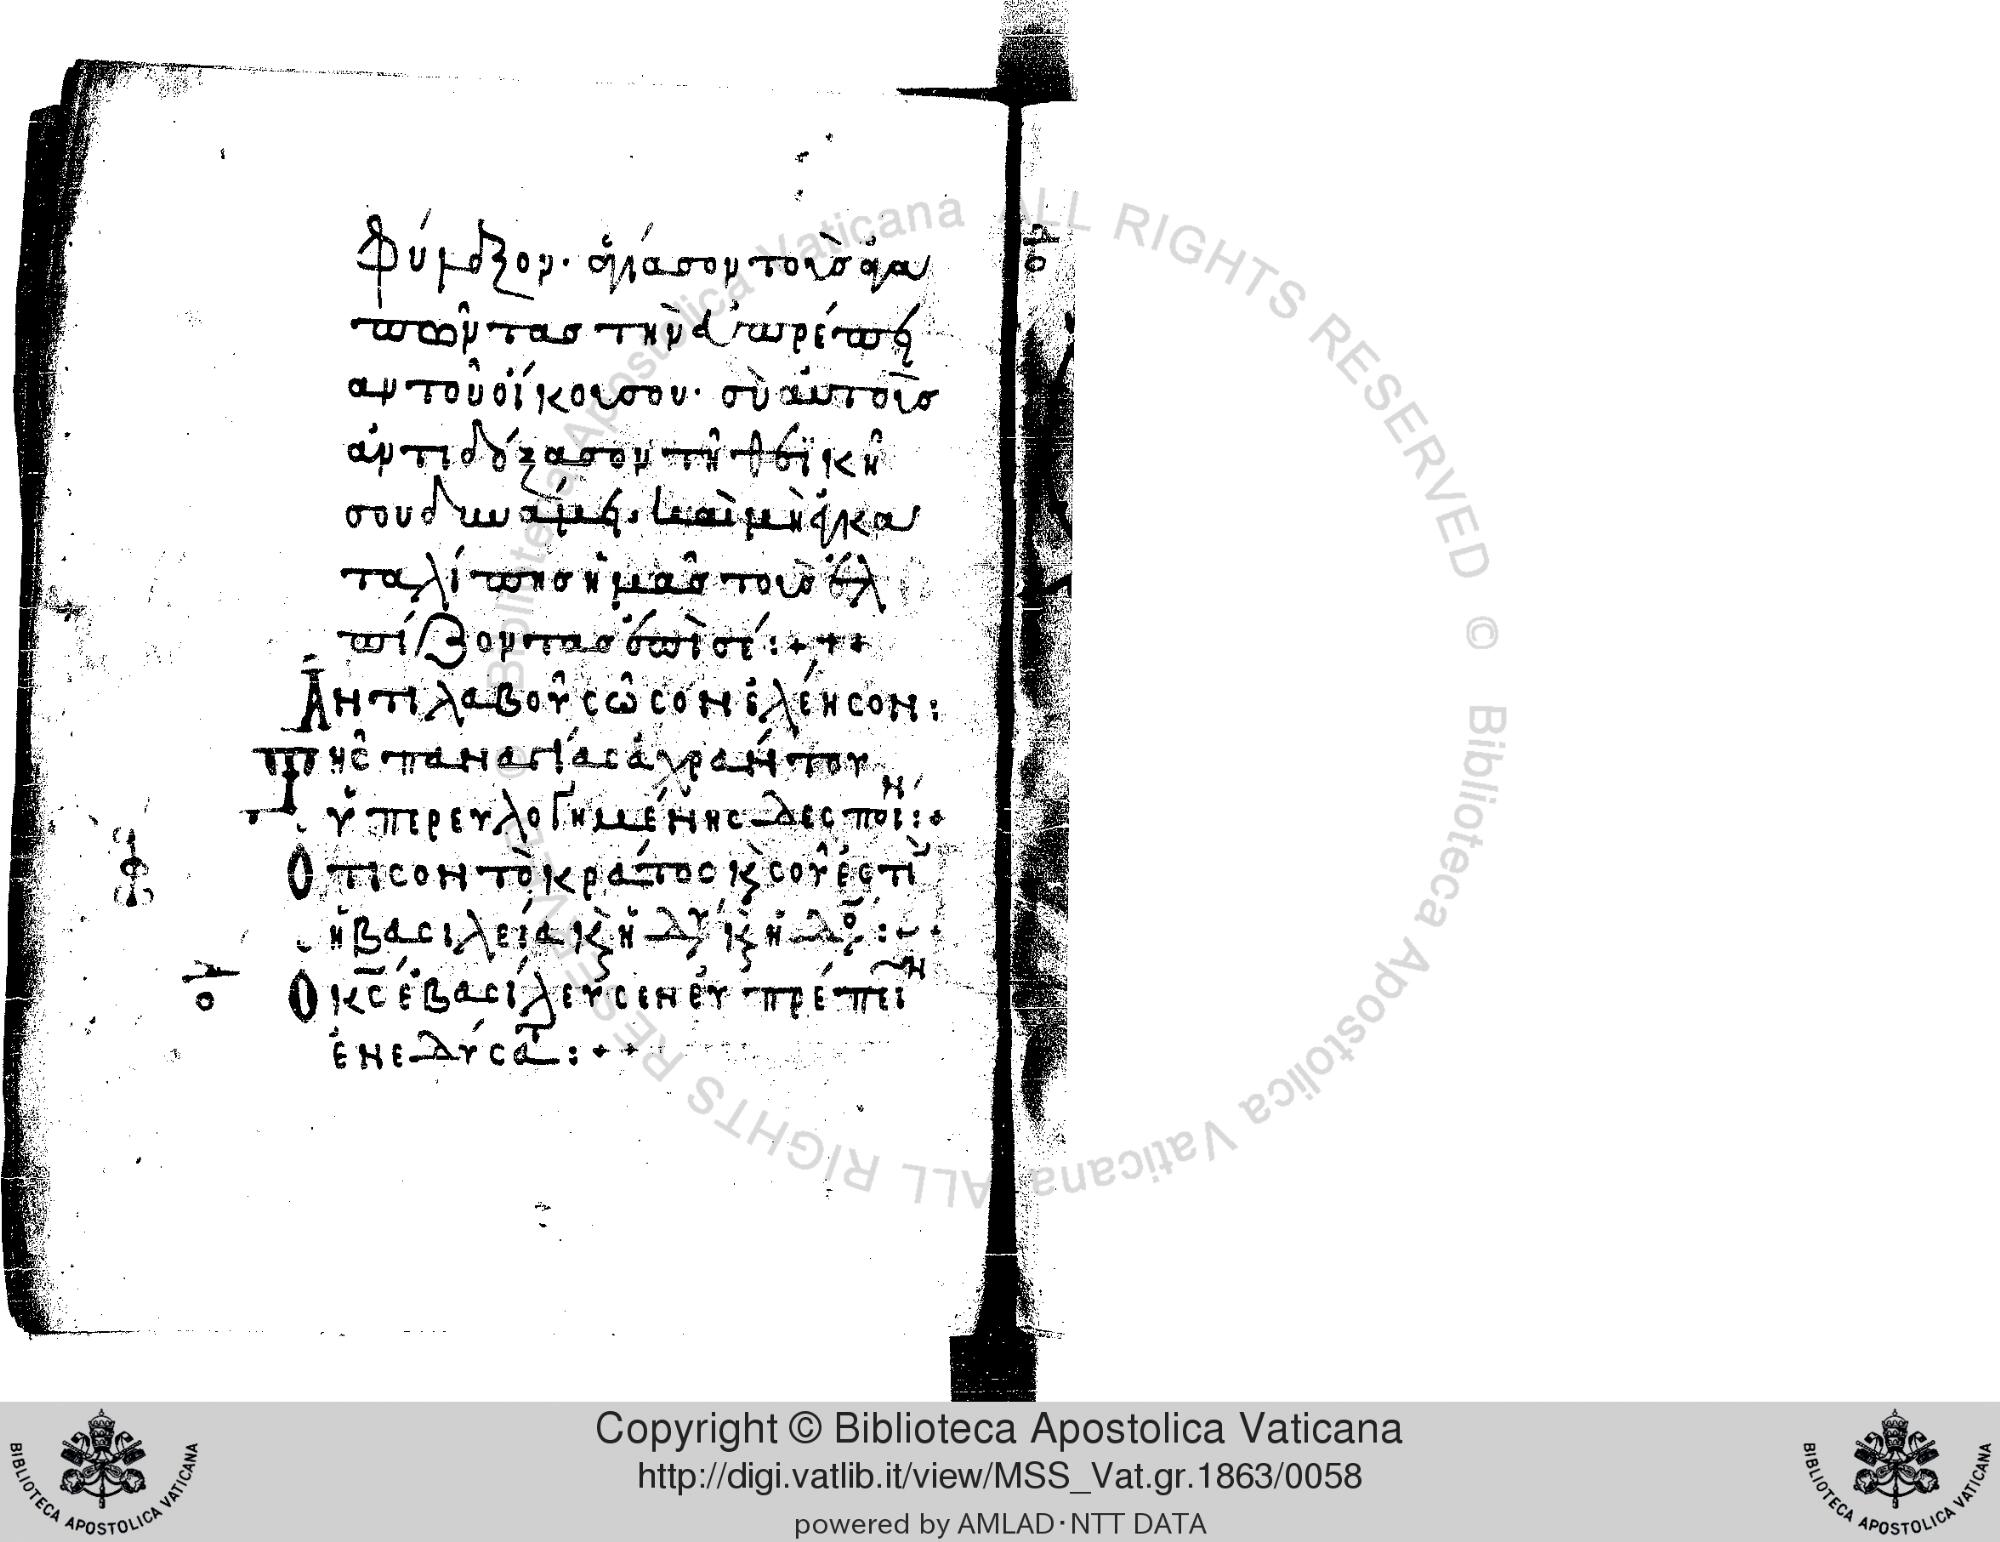 φύλαξον· ἁγίασον τοὺς ἀγα
πῶντας τὴν εὐπρέπει
αν τοῦ οἴκου σου· σὺ αὐτοὺς
ἀντιδόξασον τῆ θεϊκῆ
σου δυνάμει· καὶ μὴ ἐγκα
ταλίπης ἡμᾶς τοὺς ἐλ
πίζοντας ἐπὶ σέ:+++
Ἀντιλαβοῦ σῶσον ἐλέησον:
Τῆς παναγίας ἀχράντου
ὑπερευλογημένης δεσποι:+
Ὅτι σὸν τὸ κράτος κ̀ σοῦ ἐστὶν
ἡ βασιλεία κ̀ ἡ δυ κ̀ ἡ δοξ:
Ὁ κς ἐβασίλευσεν εὐπρέπειν
ἐνεδύσατ:++
Copyright © Biblioteca Apostolica Vaticana
http://digi.vatlib.it/view/MSS_Vat.gr.1863/0058
powered by AMLAD·NTT DATA
BIBLIOTECA APOSTOLICA VATICANA
BIBLIOTECA APOSTOLICA VATICANA
© Biblioteca Apostolica Vaticana ALL RIGHTS RESERVED © Biblioteca Apostolica Vaticana ALL RIGHTS RESERVED